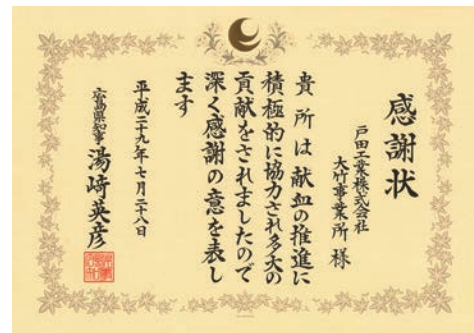 感謝状
戸田工業株式会社
大竹事業所様
貴所は献血の推進に
積極的に協力され多大の
貢献をされましたので
深く感謝の意を表し
ます
平成二十九年七月二十八日
広島県知事 湯﨑英彦